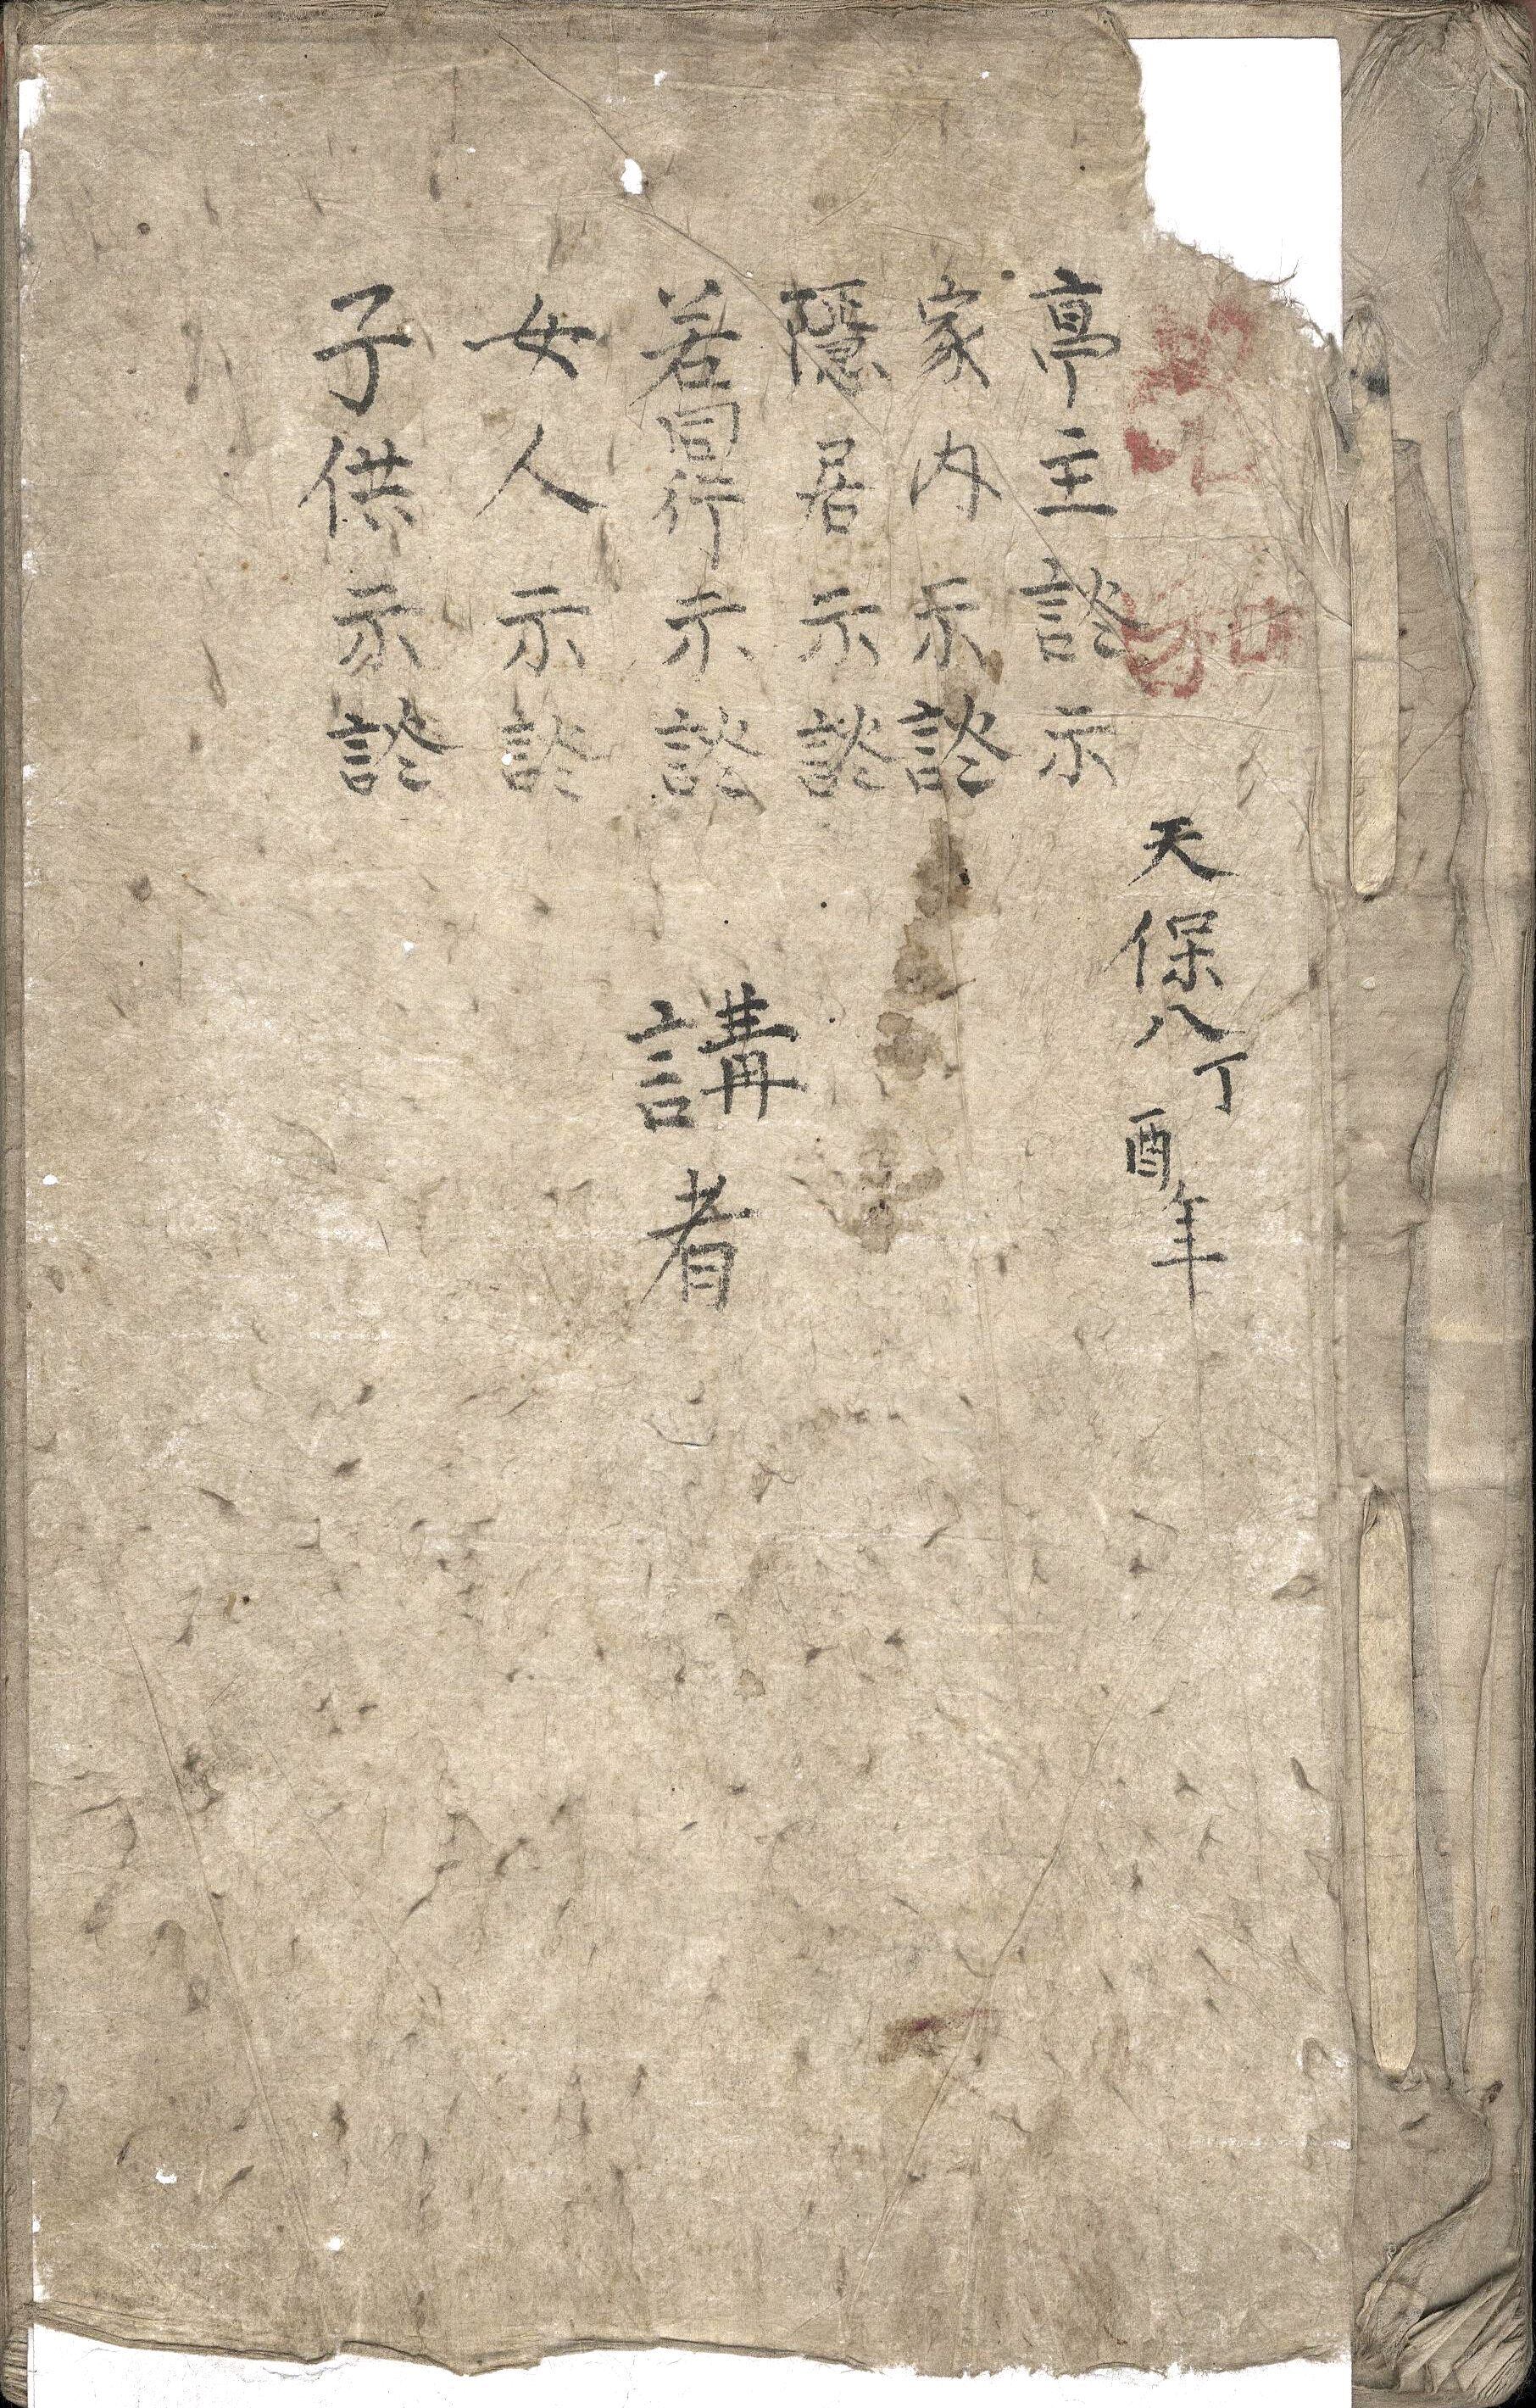 天保八丁酉年
亭主談示
家内示談
隱居示談
若同行示談
女人示談
子供示談
講者